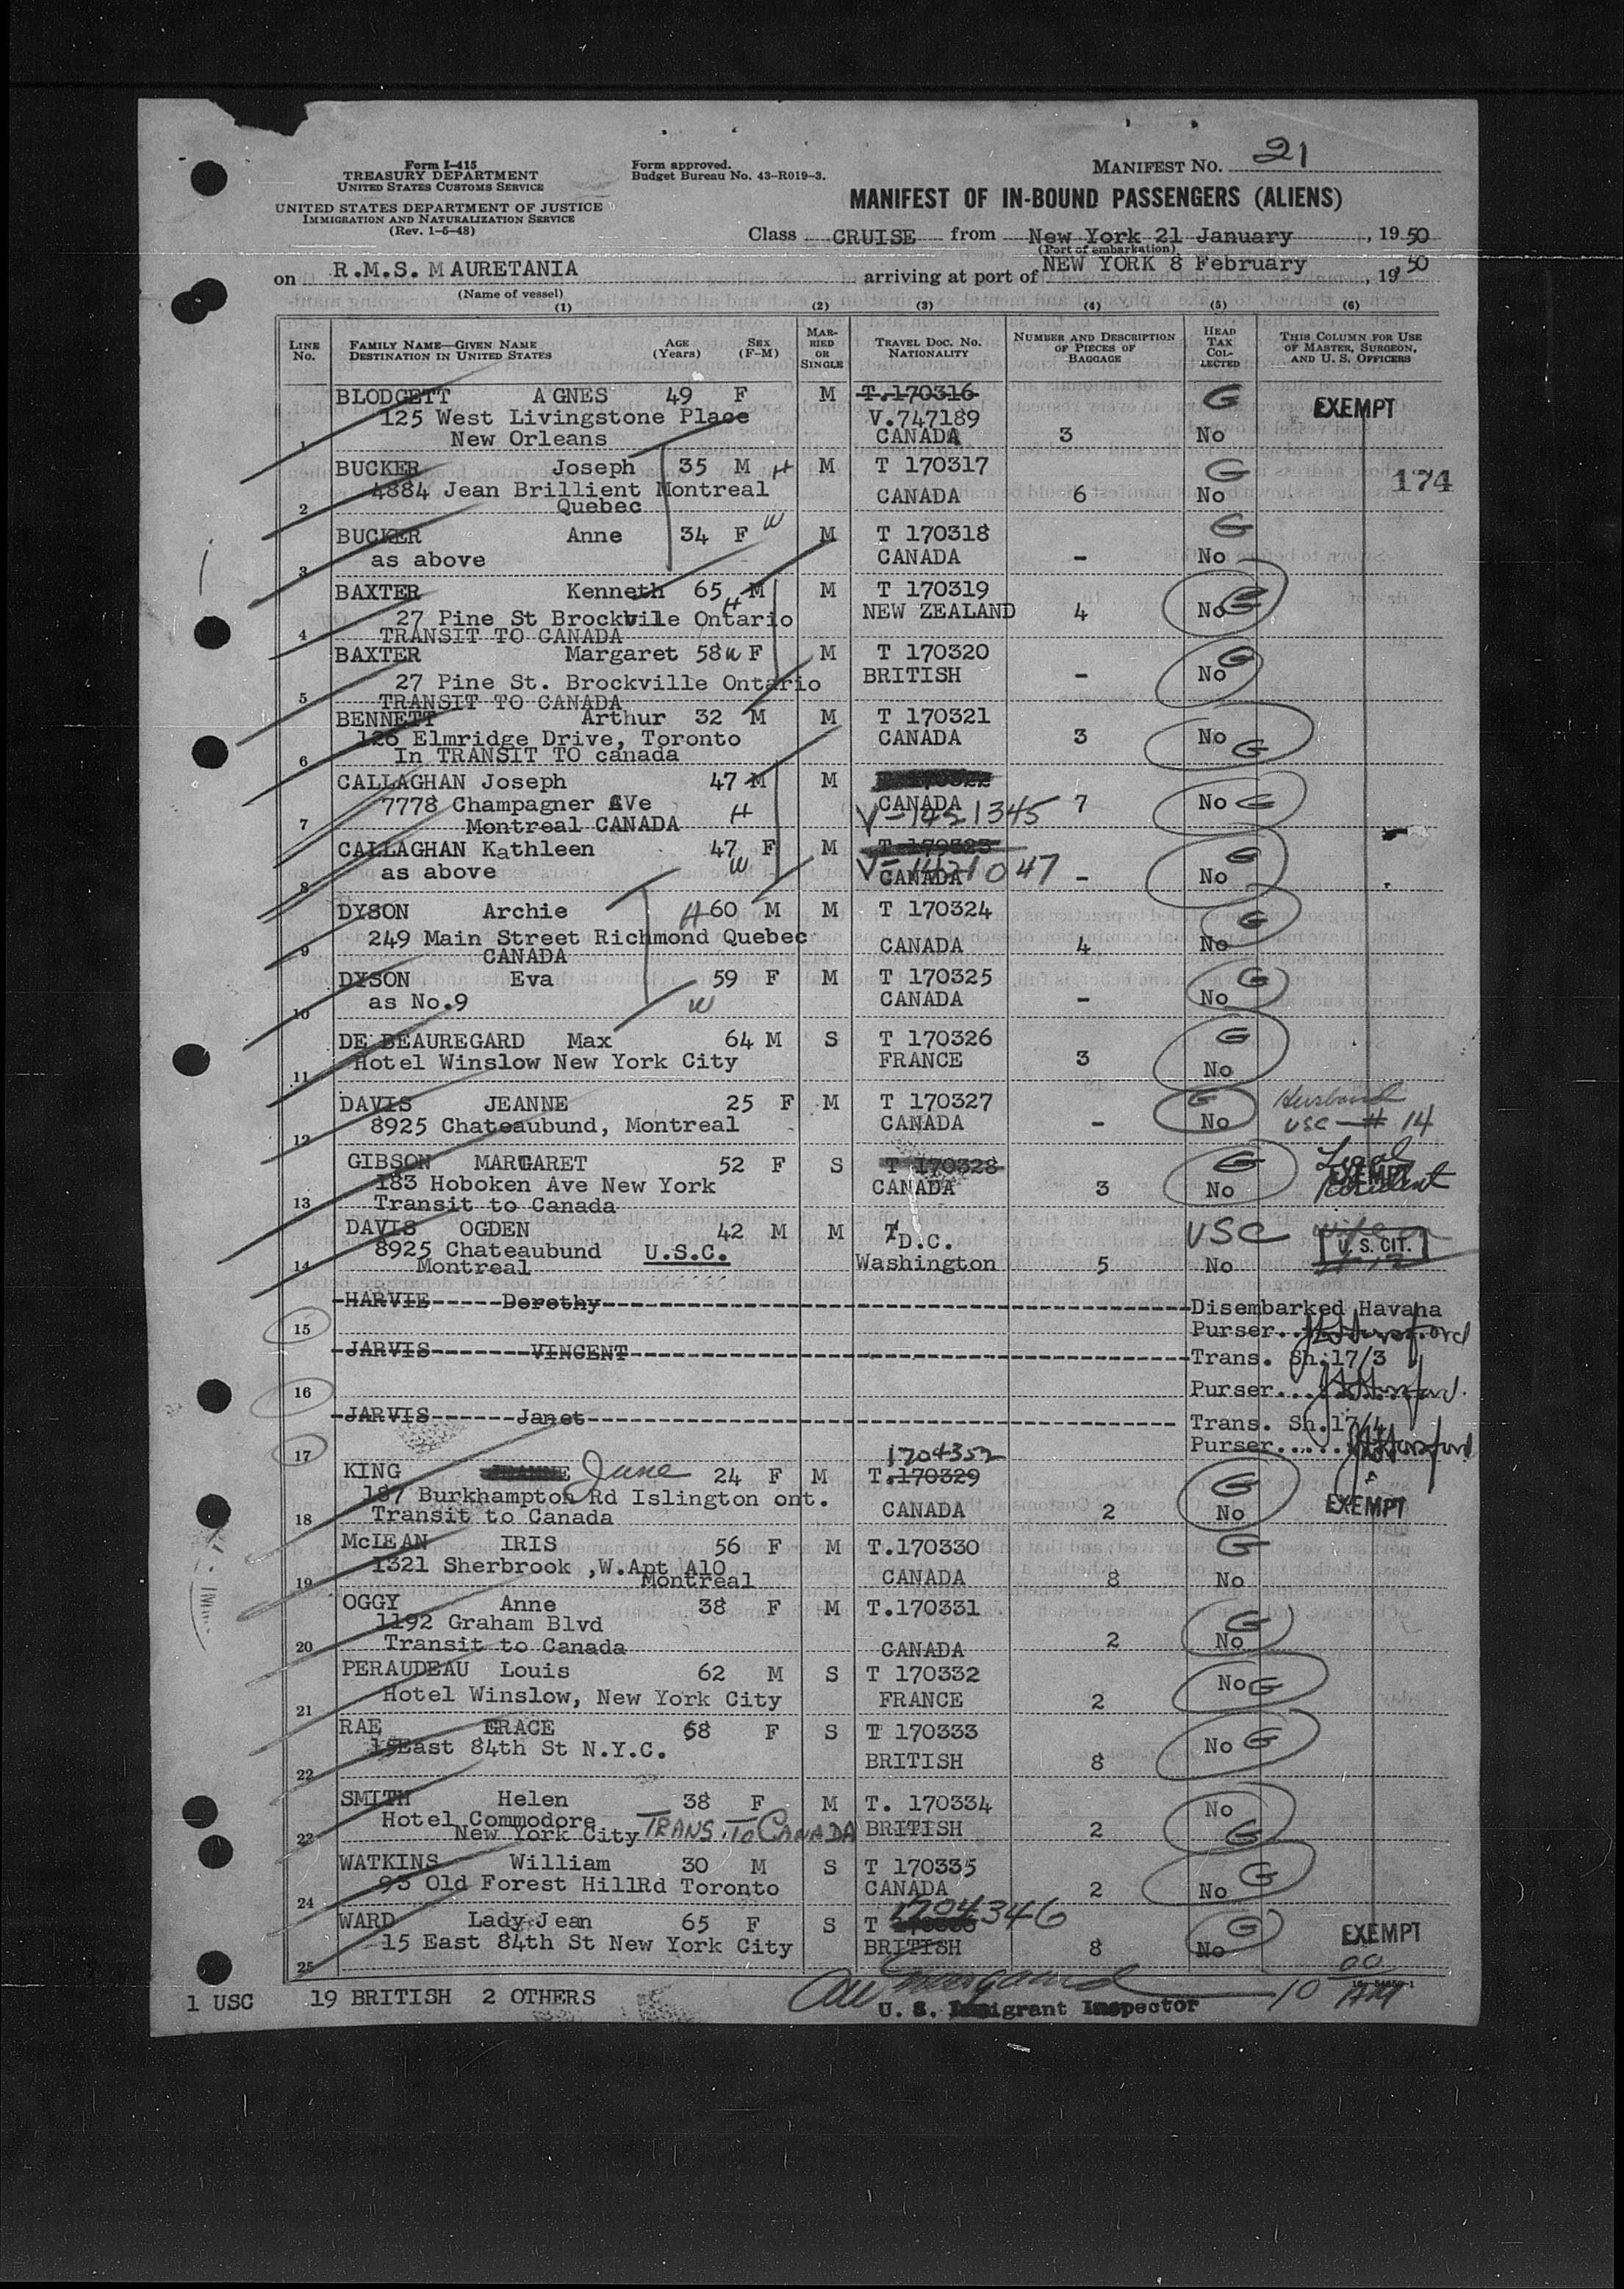 Form I-415
TREASURY DEPARTMENT
UNITED STATES CUSTOMS SERVICE
UNITED STATES DEPARTMENT OF JUSTICE
IMMIGRATION AND NATURALIZATION SERVICE
(Rev. 1-5-48)
Form approved.
Budget Bureau No. 43-R019-3.
MANIFEST NO. 21
MANIFEST OF IN-BOUND PASSENGERS (ALIENS)
Class CRUISE from New York 21 January, 1950
(Port of embarkation)
on R.M.S. MAURETANIA arriving at port of NEW YORK 8 February, 1950
(Name of vessel)
(1) (2) (3) (4) (5) (6)
LINE No. FAMILY NAME—GIVEN NAME DESTINATION IN UNITED STATES AGE (Years) SEX (F-M) MARRIED OR SINGLE TRAVEL DOC. NO. NATIONALITY NUMBER AND DESCRIPTION OF PIECES OF BAGGAGE HEAD TAX COLLECTED THIS COLUMN FOR USE OF MASTER, SURGEON, AND U. S. OFFICERS
BLODGETT AGNES 49 F M T.170316 G EXEMPT
125 West Livingstone Place V.747189
1 New Orleans CANADA 3 No
BUCKER Joseph 35 M H M T 170317 G 174
4884 Jean Brillient Montreal CANADA 6 No
2 Quebec
BUCKER Anne 34 F W M T 170318 G
3 as above CANADA - No
BAXTER Kenneth 65 M H M T 170319
27 Pine St Brockvile Ontario NEW ZEALAND 4 No G
4 TRANSIT TO CANADA
BAXTER Margaret 58 W F M T 170320 G
27 Pine St. Brockville Ontario BRITISH - No
5 TRANSIT TO CANADA
BENNETT Arthur 32 M M T 170321
126 Elmridge Drive, Toronto CANADA 3 No G
6 In TRANSIT TO canada
CALLAGHAN Joseph 47 M M T 170322
7778 Champagner AVe H CANADA 7 No G
7 Montreal CANADA V-1421345
CALLAGHAN Kathleen 47 F M T 170323 G
8 as above W V-1421047 CANADA - No
DYSON Archie H 60 M M T 170324 G
249 Main Street Richmond Quebec CANADA 4 No
9 CANADA
DYSON Eva 59 F M T 170325 G
10 as No.9 W CANADA - No
DE BEAUREGARD Max 64 M S T 170326 G
11 Hotel Winslow New York City FRANCE 3 No
DAVIS JEANNE 25 F M T 170327 G Husband
12 8925 Chateaubund, Montreal CANADA - No USC - # 14
GIBSON MARGARET 52 F S T 170328 G Legal
183 Hoboken Ave New York CANADA 3 No EXEMPT Resident
13 Transit to Canada
DAVIS OGDEN 42 M M T USC wife on
8925 Chateaubund U.S.C. D.C. U. S. CIT.
14 Montreal Washington 5 No
HARVIE Dorothy Disembarked Havana
15 Purser..
JARVIS VINCENT Trans. Sh.17/3
16 Purser...
JARVIS Janet Trans. Sh.17/4
17 Purser.....
1704352
KING June 24 F M T.170329 G
187 Burkhampton Rd Islington ont. CANADA 2 No EXEMPT
18 Transit to Canada
McLEAN IRIS 56 F M T.170330 G
1321 Sherbrook ,W.Apt A10
19 Montreal CANADA 8 No
OGGY Anne 38 F M T.170331
1192 Graham Blvd G
20 Transit to Canada CANADA 2 No
PERAUDEAU Louis 62 M S T 170332 No G
21 Hotel Winslow, New York City FRANCE 2
RAE GRACE 68 F S T 170333
15East 84th St N.Y.C. No G
22 BRITISH 8
SMITH Helen 38 F M T. 170334 No
Hotel Commodore
23 New York City TRANS. TO CANADA BRITISH 2 G
WATKINS William 30 M S T 170335 G
24 93 Old Forest HillRd Toronto CANADA 2 No
1704346
WARD Lady Jean 65 F S T G EXEMPT
25 15 East 84th St New York City BRITISH 8 No
1 USC 19 BRITISH 2 OTHERS 10 00 AM
U. S. Immigrant Inspector